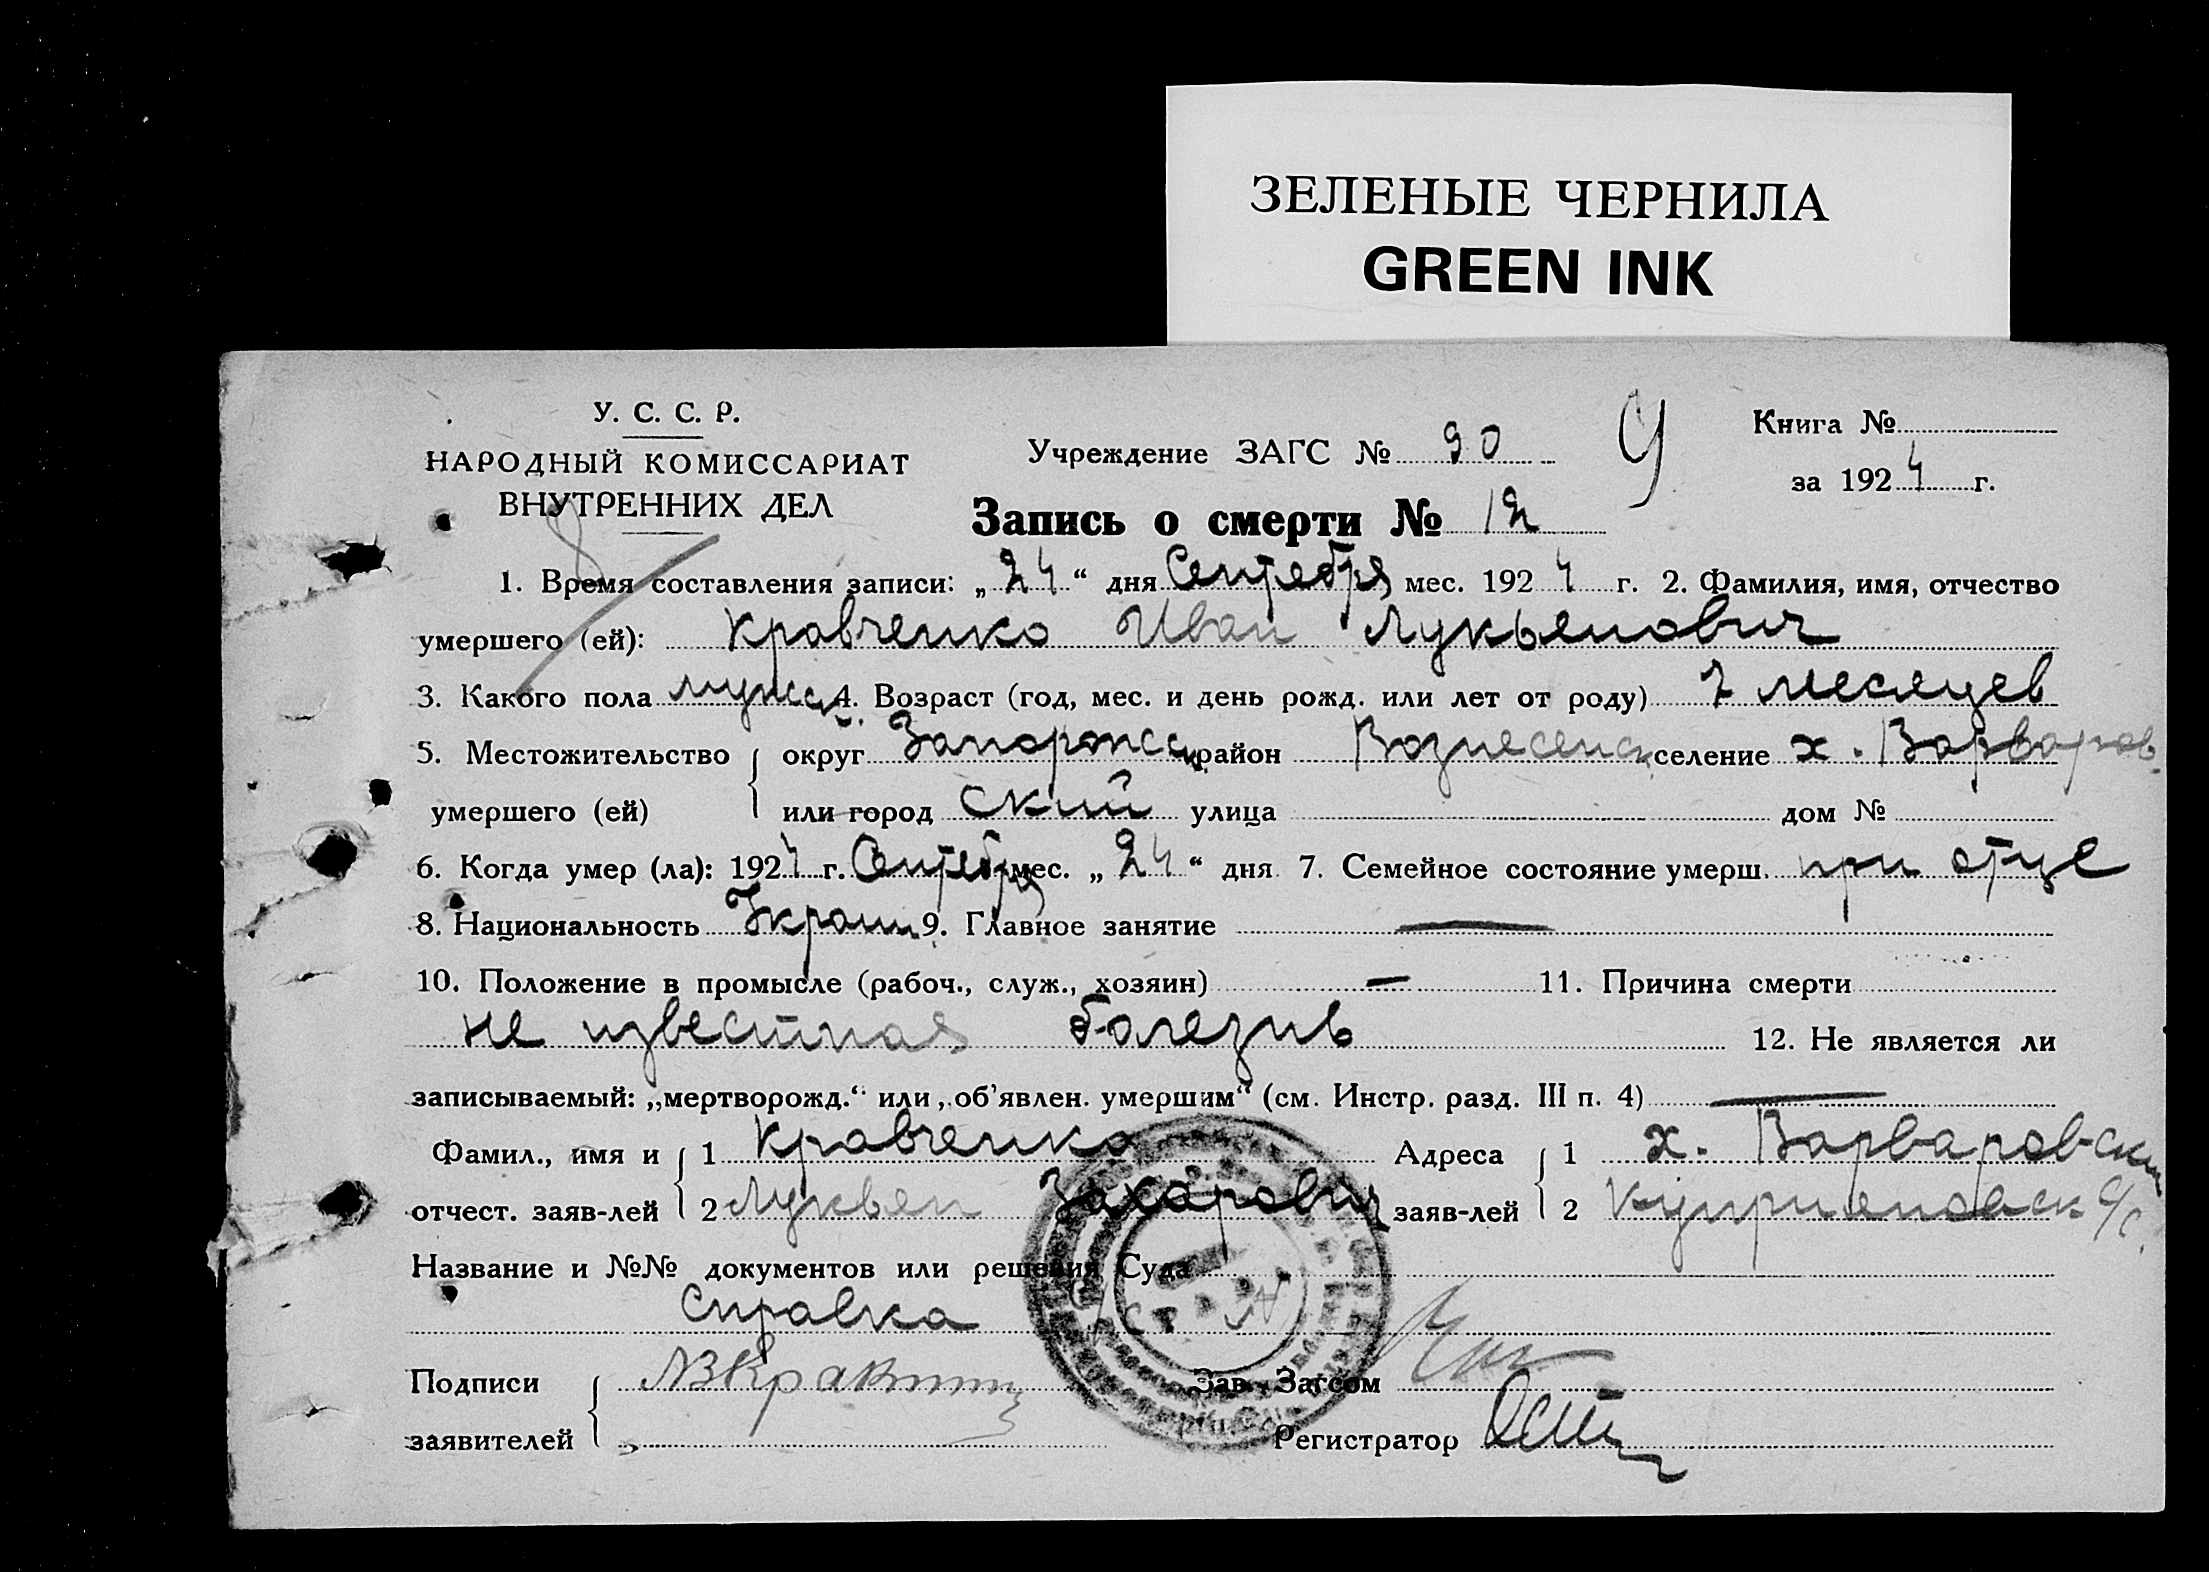 ЗЕЛЕНЫЕ ЧЕРНИЛА
GREEN INK
У. С. С. Р.
НАРОДНЫЙ КОМИССАРИАТ
ВНУТРЕННИХ ДЕЛ
Учреждение ЗАГС № 90
Книга №
за 1924 г.
Запись о смерти № 12
1. Время составления записи: „24“ дня Сентября мес. 1924 г. 2. Фамилия, имя, отчество
умершего (ей): Кравченко Иван Лукьенович
3. Какого пола мужск. 4. Возраст (год, мес. и день рожд. или лет от роду) 7 месяцев
5. Местожительство округ Запорожск район Вознесенск селение х. Варваров
умершего (ей) или город ский улица дом №
6. Когда умер (ла): 1924 г. Сентября мес. „24“ дня 7. Семейное состояние умерш. при отце
8. Национальность Украин 9. Главное занятие —
10. Положение в промысле (рабоч., служ., хозяин) — 11. Причина смерти
не известная болезнь 12. Не является ли
записываемый: „мертворожд.“ или „об'явлен. умершим“ (см. Инстр. разд. III п. 4) —
Фамил., имя и 1 Кравченко Адреса 1 х. Варваровский
отчест. заяв-лей 2 Лукьен Захарович заяв-лей 2 Куприеновск с/с.
Название и №№ документов или решения Суда
справка
Подписи Зав. Загсом
заявителей Регистратор